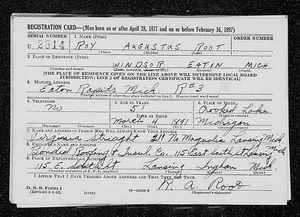 REGISTRATION CARD—(Men born on or after April 28, 1877 and on or before February 16, 1897)
SERIAL NUMBER 1. NAME (Print)
U 2314 ROY AUGUSTUS ROOT
2. PLACE OF RESIDENCE (Print)
WINDSOR EATIN MICH.
[THE PLACE OF RESIDENCE GIVEN ON THE LINE ABOVE WILL DETERMINE LOCAL BOARD
JURISDICTION; LINE 2 OF REGISTRATION CERTIFICATE WILL BE IDENTICAL]
3. MAILING ADDRESS
Eaton Rapids Mich R#3
4. TELEPHONE
No Crooked Lake
March 1891 Michigan
7. NAME AND ADDRESS OF PERSON WHO WILL ALWAYS KNOW YOUR ADDRESS
Virginia Straight 211 No Magnolia Lansing Mich
8. EMPLOYER'S NAME AND ADDRESS
Bonded Roofing & Insul. Co. 115 East South St Lansing Mich
9. PLACE OF EMPLOYMENT OR BUSINESS
115 E. South St Lansing Ingham Mich
I AFFIRM THAT I HAVE VERIFIED ABOVE ANSWERS AND THAT THEY ARE TRUE.
D. S. S. Form 1
(Revised 4-1-42)
R. A. Root